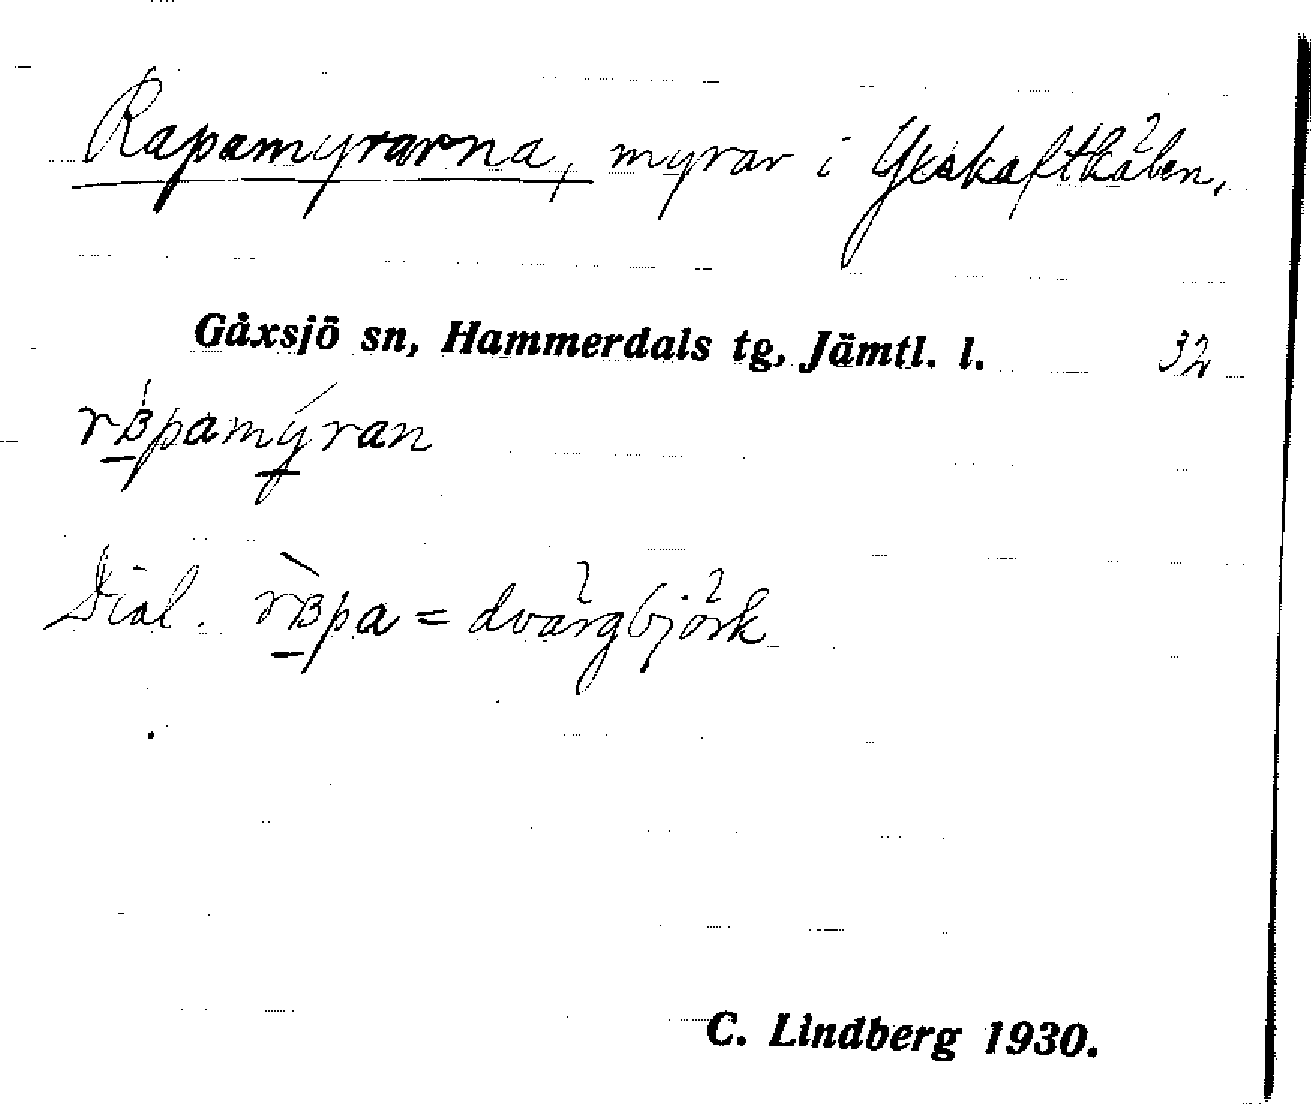 Rapamyrarna, myrar i Yxskaftkälen,
Gåxsjö sn, Hammerdals tg, Jämtl. l. 32
rʙpamýran
Dial. rʙ̀pa = dvärgbjörk
C. Lindberg 1930.